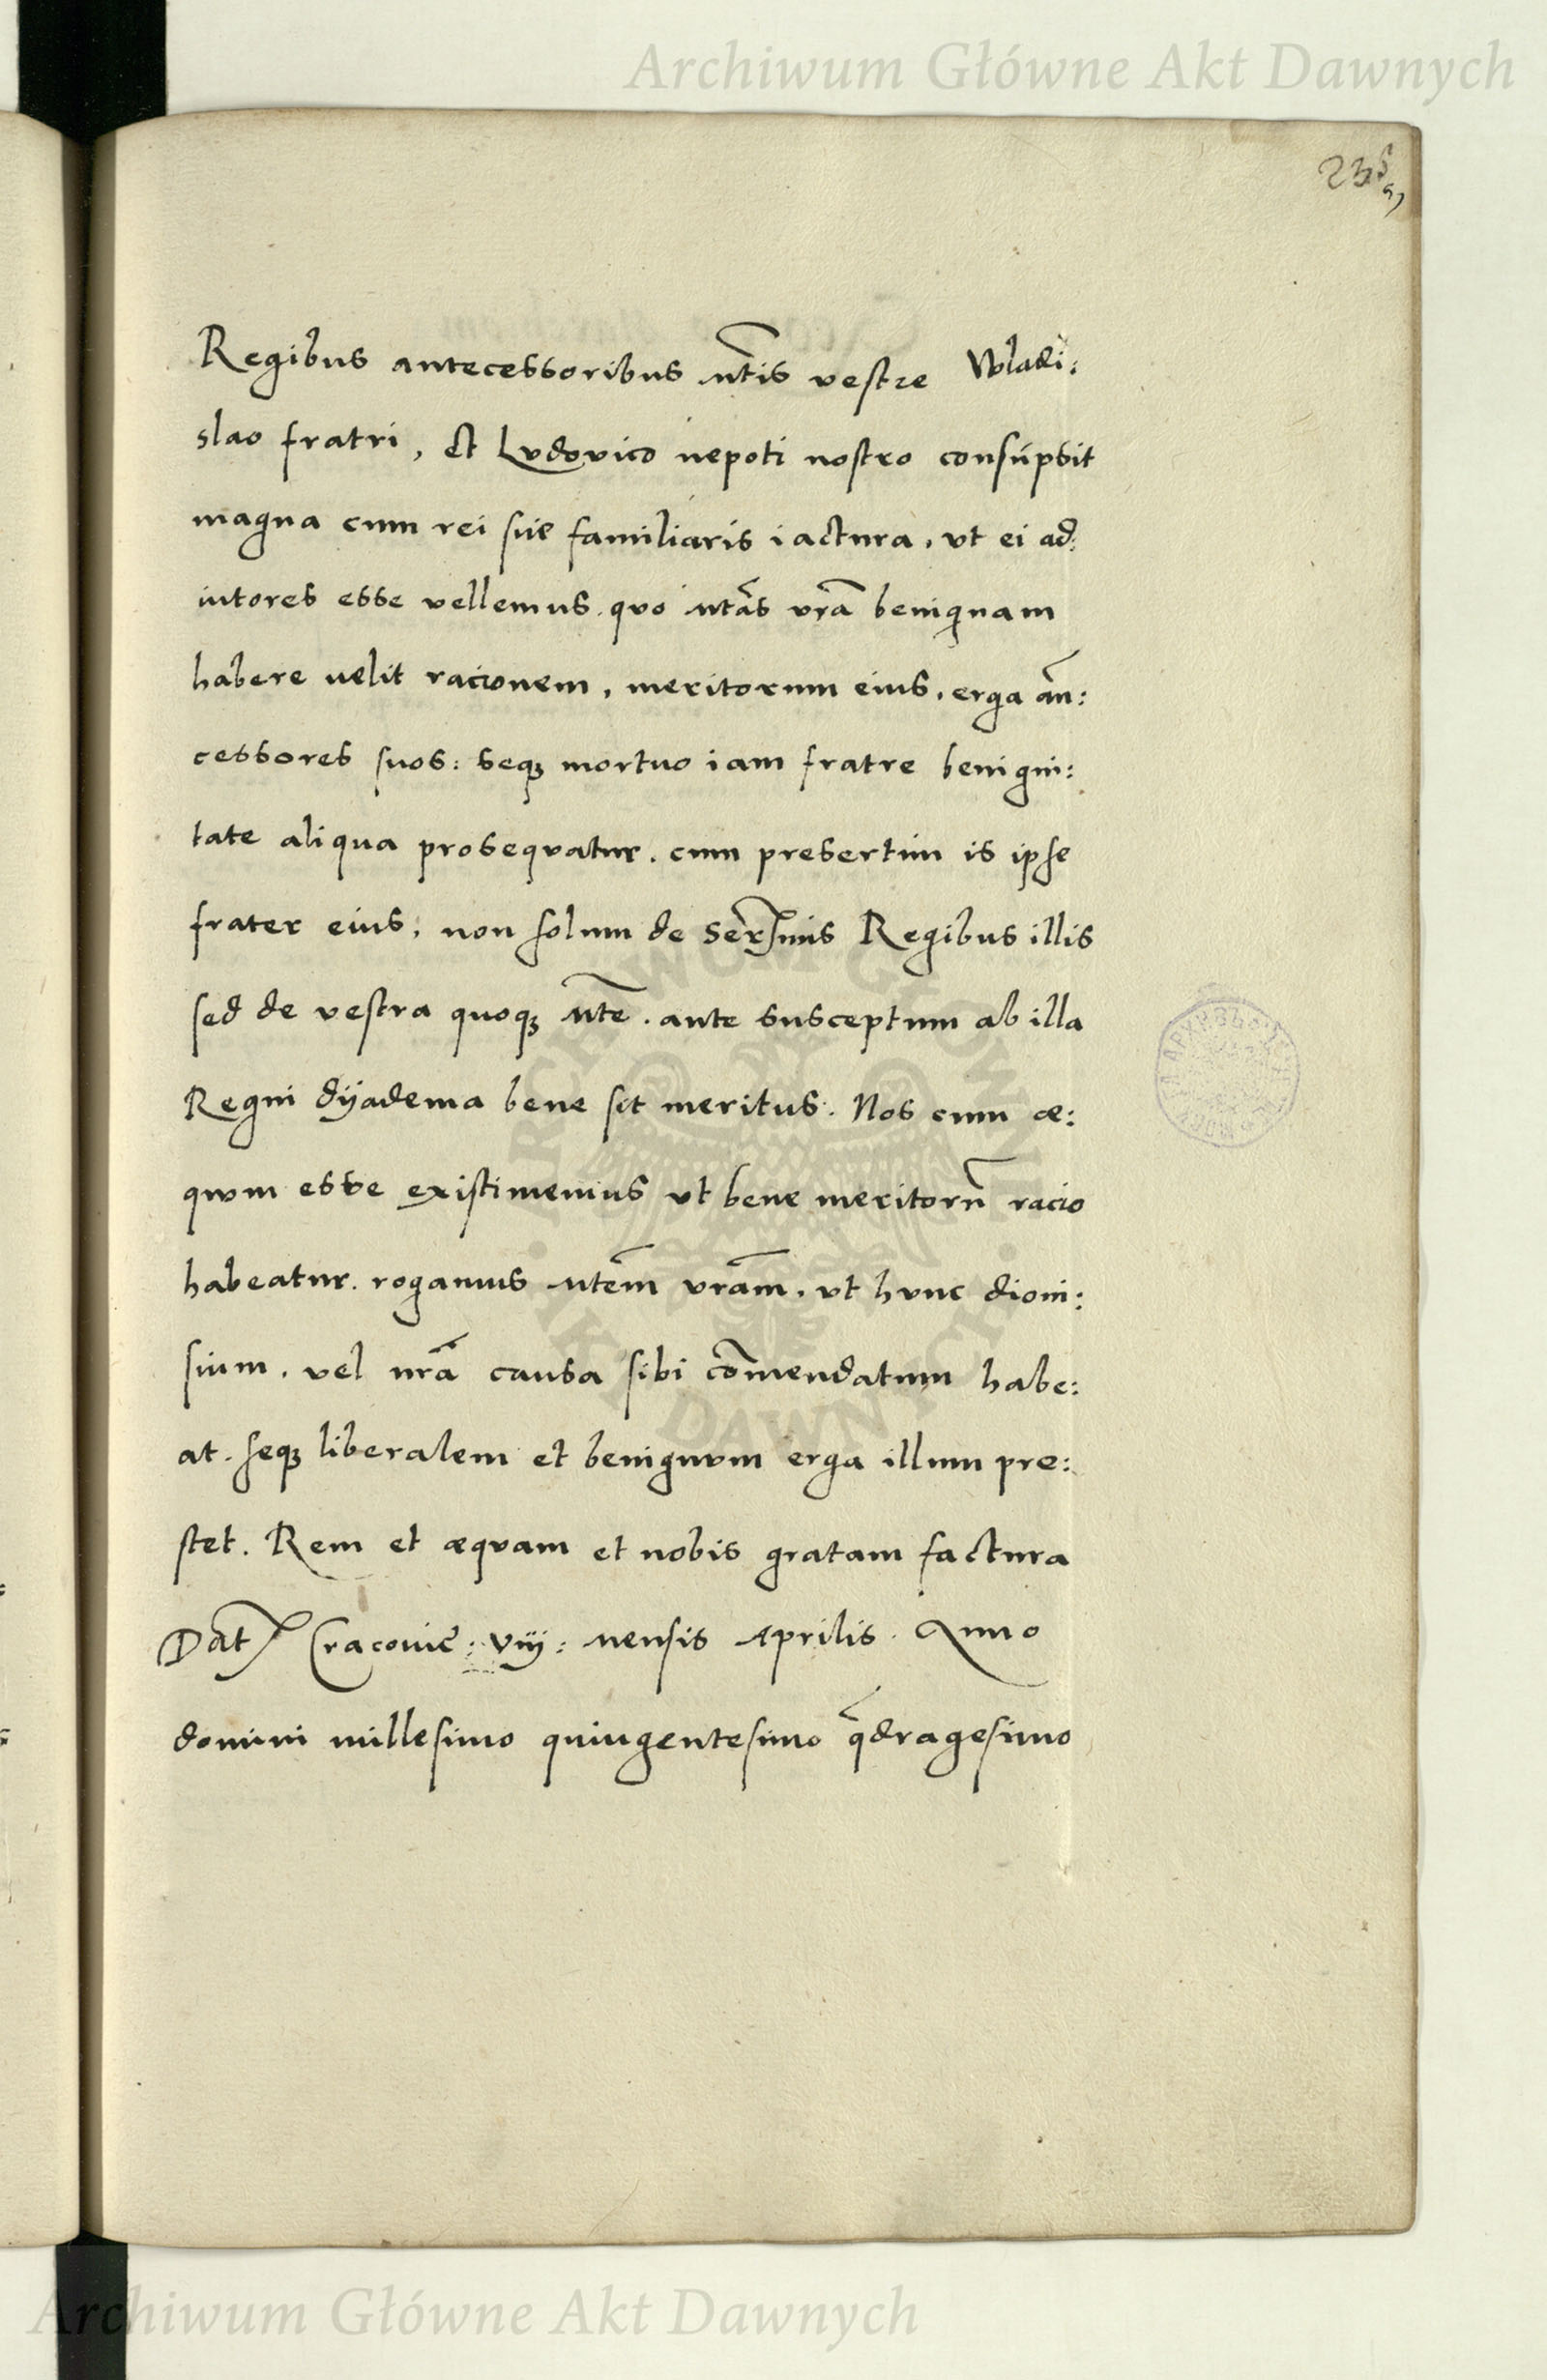 Archiwum Główne Akt Dawnych
Regibus antecessoribus Mtis vestre Wladi:
slao fratri, Et Ludovico nepoti nostro consūpsit
magna cum rei sue familiaris iactura, vt ei ad:
iutores esse vellemus. quo Mtas vra benignam
habere velit racionem, meritorum eius, erga an:
cessores suos: seqꝫ mortuo iam fratre benigni:
tate aliqua prosequatur. cum presertim is ipse
frater eius, non solum de Sermis Regibus illis
sed de vestra quoqꝫ Mte. ante susceptum ab illa
Regni dÿadema bene sit meritus. Nos cum æ:
quum esse existimemus vt bene meritorū racio
habeatur. rogamus Mtem vram, vt hunc dioni:
sium, vel nra causa sibi cōmendatum habe:
at. seqꝫ liberalem et benignum erga illum pre:
stet. Rem et æquam et nobis gratam factura
Dat Cracovie: viij: mensis Aprilis. Anno
domini millesimo quingentesimo qdragesimo
ARCHIWUM GŁÓWNE AKT DAWNYCH
Archiwum Główne Akt Dawnych